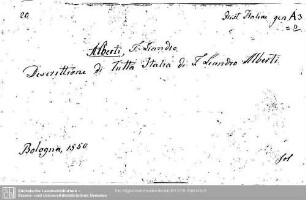 20
Hist. Italiae gen. A 3
= 2
Alberti, F. Leandro.
Descrittione di Tutta Italia di F. Leandro Alberti.
Bologna, 1550
fol
Sächsische Landesbibliothek -
Staats- und Universitätsbibliothek Dresden